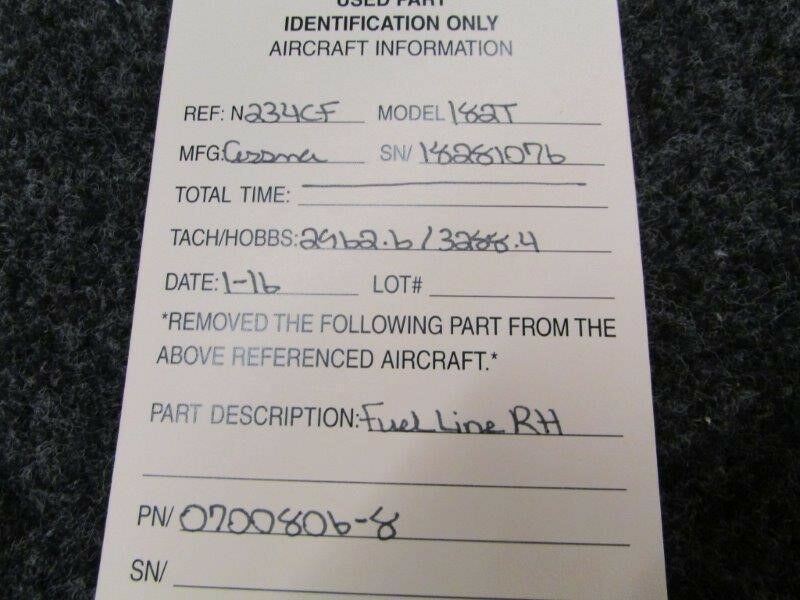 USED PART
IDENTIFICATION ONLY
AIRCRAFT INFORMATION
REF: N234CF MODEL 182T
MFG: Cessna SN/ 18281076
TOTAL TIME:
TACH/HOBBS: 2962.6 / 3288.4
DATE: 1-16 LOT#
*REMOVED THE FOLLOWING PART FROM THE
ABOVE REFERENCED AIRCRAFT.*
PART DESCRIPTION: Fuel Line RH
PN/ 0700806-8
SN/